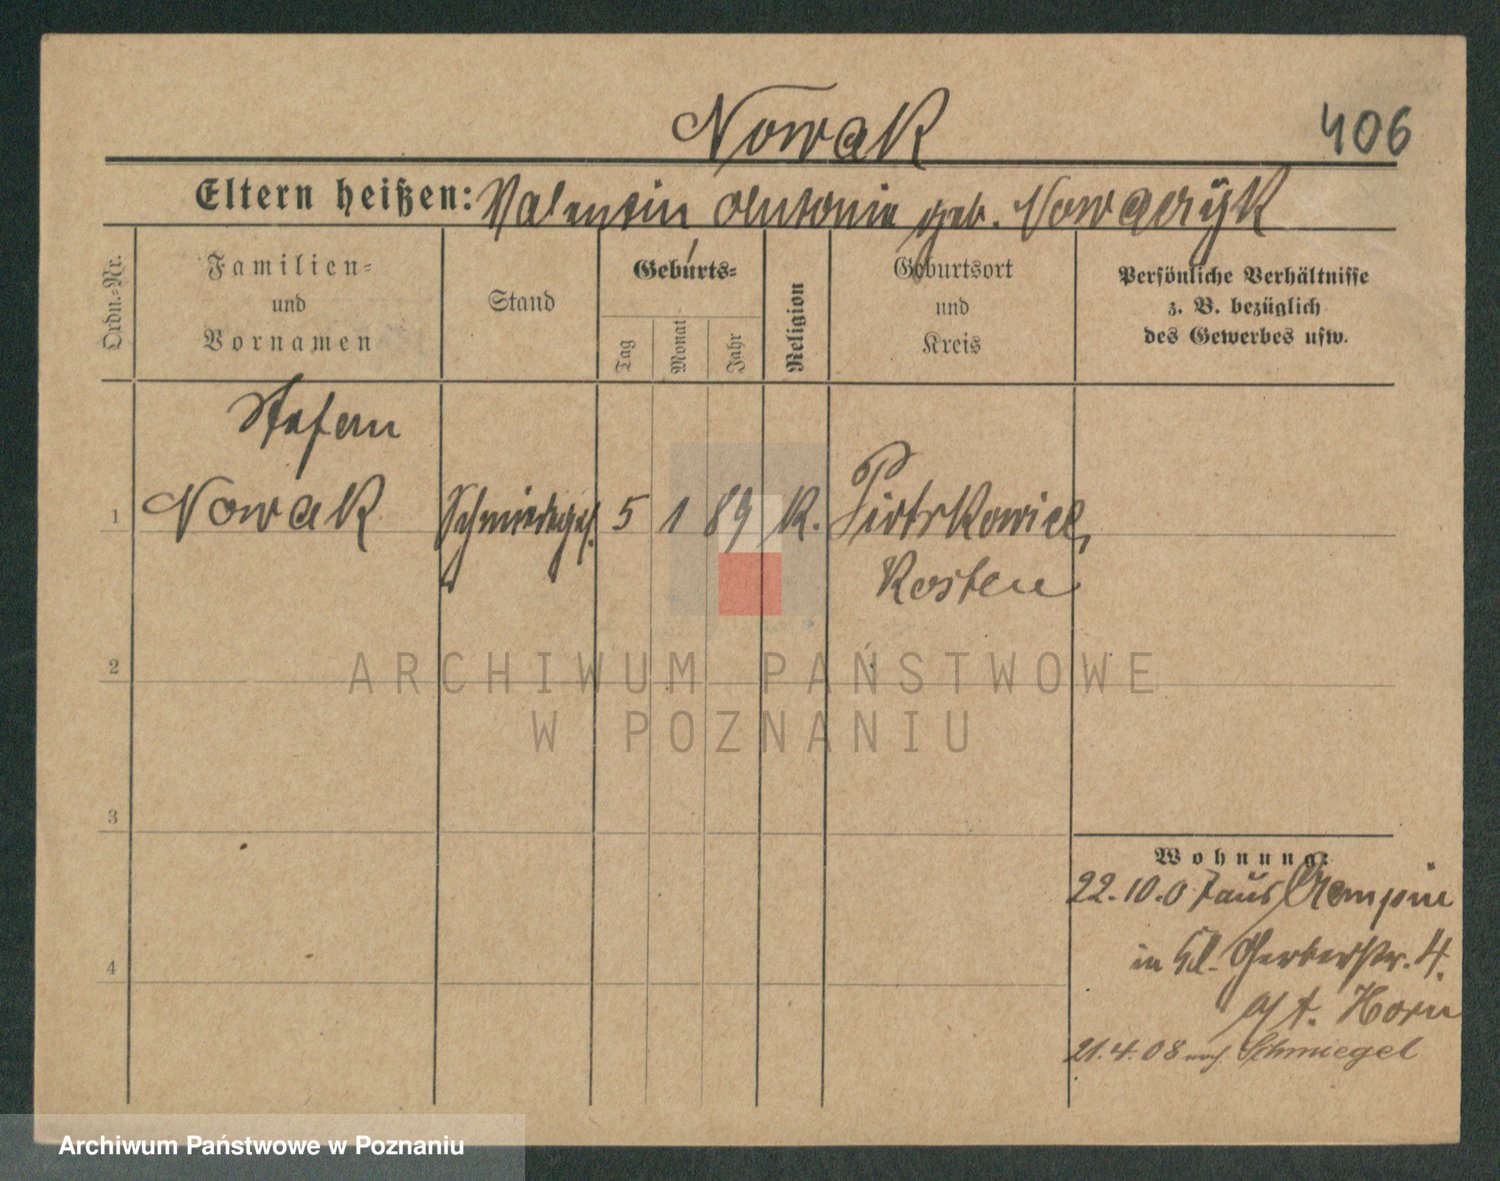 Nowak
406
Eltern heißen: Valentin Antonie geb. Nowaczyk
Ordn.-Nr.
Familien-
und
Vornamen
Stand
Geburts-
Tag
Monat
Jahr
Religion
Geburtsort
und
Kreis
Persönliche Verhältnisse
z. B. bezüglich
des Gewerbes usw.
Stefan
1 Nowak Schmiedeges. 5 1 89 K. Piotrkowice,
Kosten
2
ARCHIWUM PAŃSTWOWE
W POZNANIU
3
Wohnung:
22.10.07 aus Czempin
in Gerberstr. 4.
b/ Horn
4
21.4.08 nach Schmiegel
Archiwum Państwowe w Poznaniu